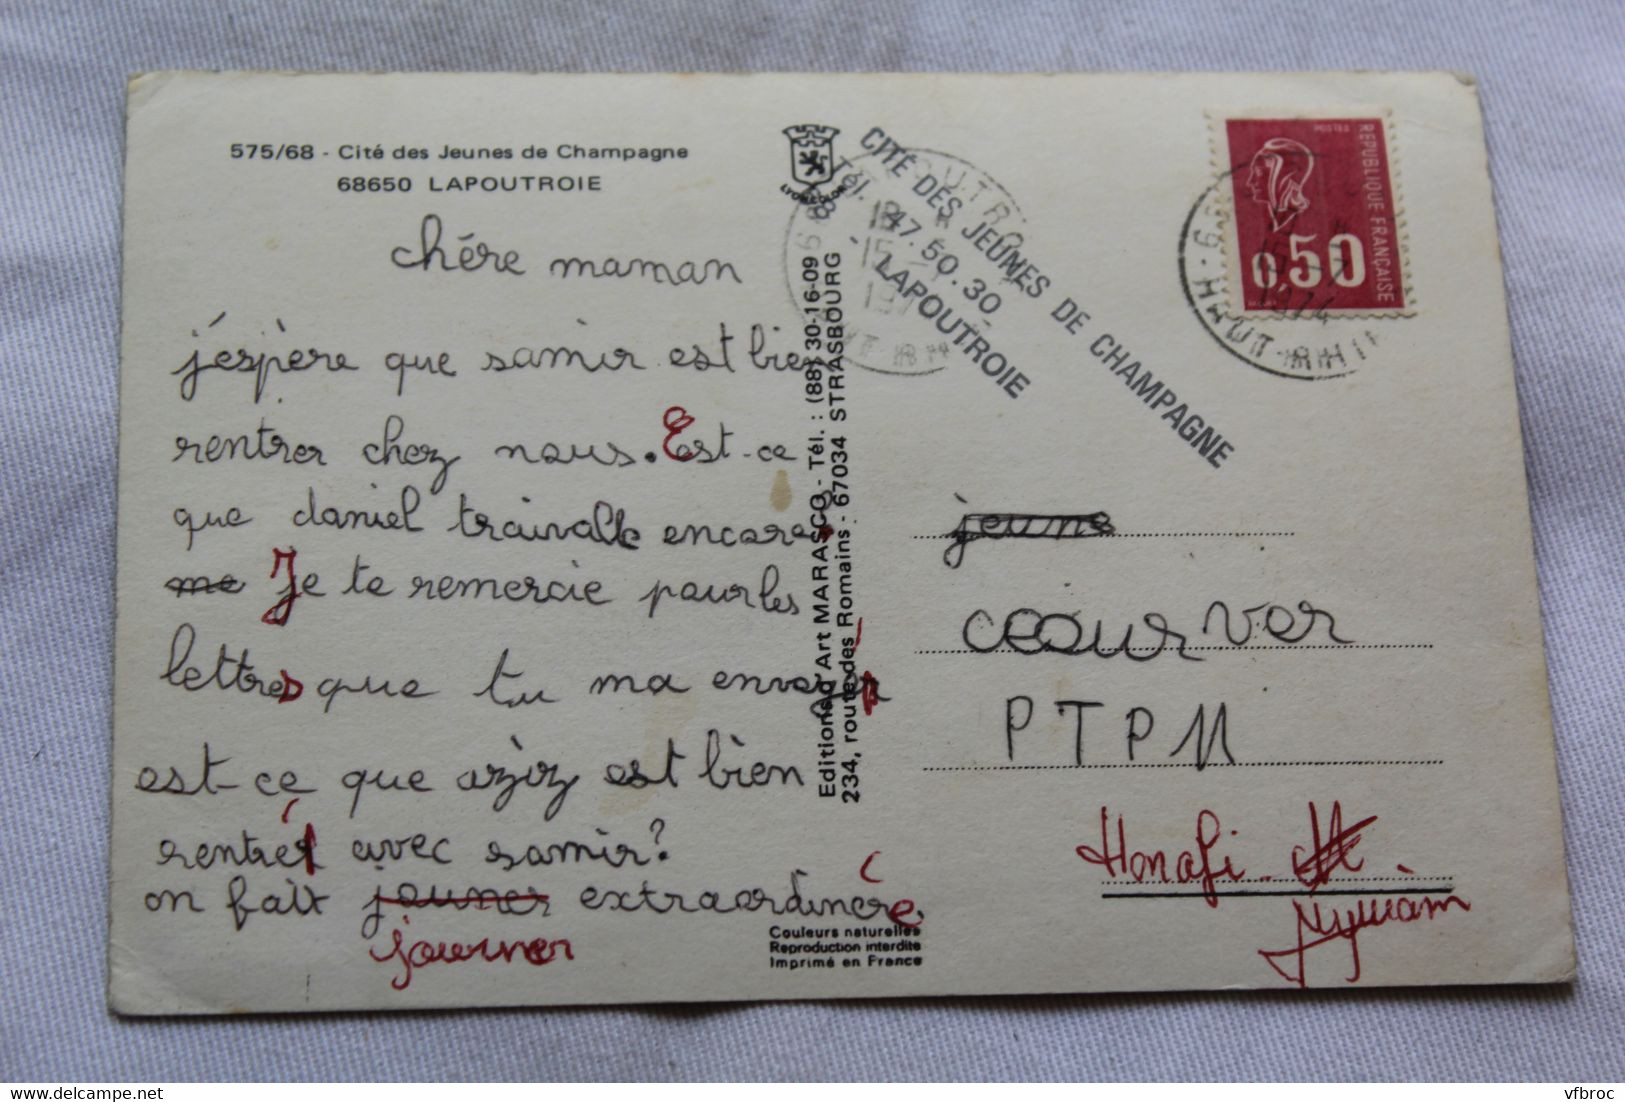 575/68 - Cité des Jeunes de Champagne
68650 LAPOUTROIE
chére maman
j'espère que samir est bien
rentrer chez nous. Est-ce
que daniel traivalle encore
me Je te remercie pour les
lettres que tu ma envoyér
est-ce que aziz est bien
rentrér avec samir?
on fait jouner extraordinére.
journer
LYONCOLOR
Editions d'Art MARASCO - Tél. : (88) 30-16-09
234, route des Romains - 67034 STRASBOURG
Couleurs naturelles
Reproduction interdite
Imprimé en France
CITÉ DES JEUNES DE CHAMPAGNE
Tél. 47.50.30
68 LAPOUTROIE
POSTES
REPUBLIQUE FRANÇAISE
0,50
HAUT-RHIN
jeune
cœour ver
P T P M
Honafi - H.